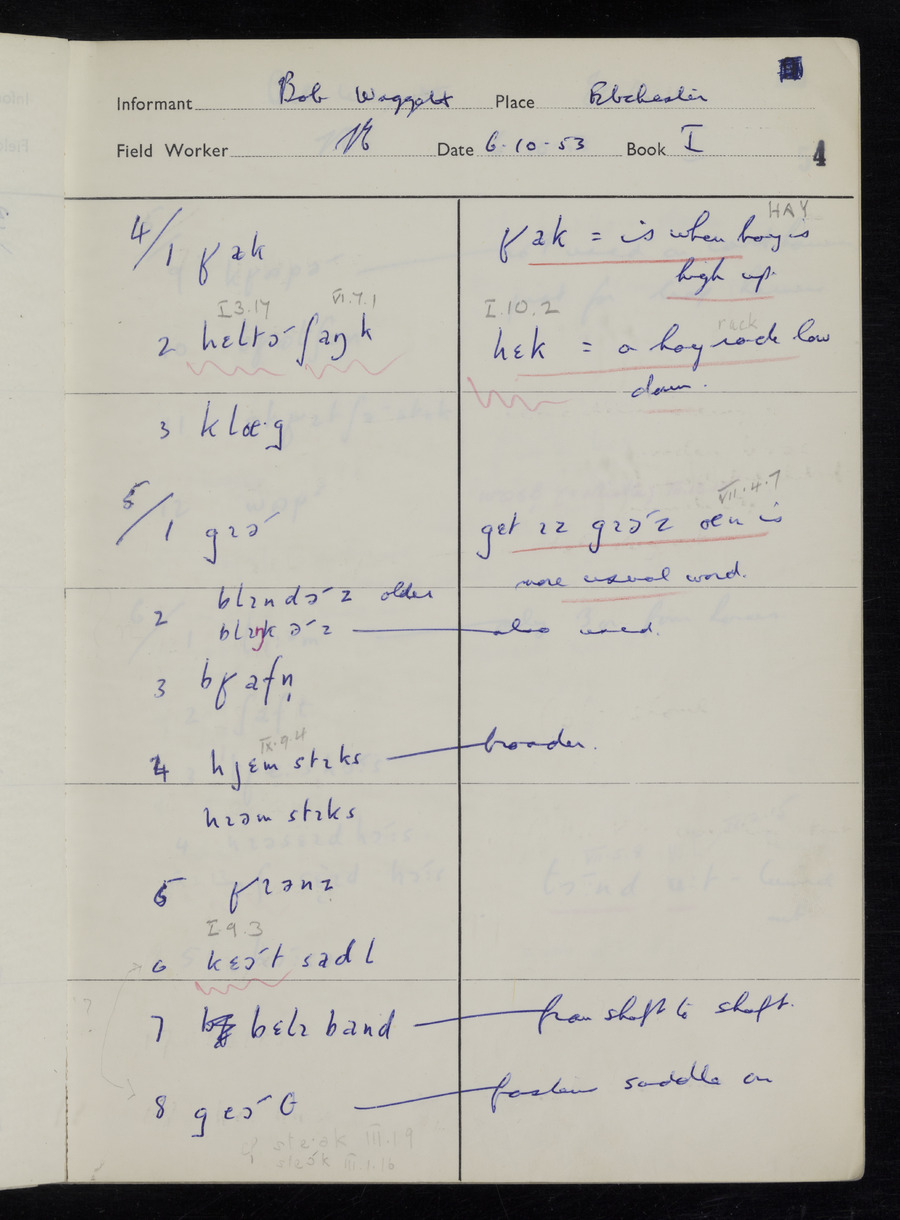 Informant Bob Waggott Place Ebchester
Field Worker Date 6-10-53 Book I
4
HAY
4/1 ʁak ʁak = is when hay is
high up.
I 3.17 VI.7.1 I.10.2
rack
2 hɛltə ʃaŋk hɛk = a hay rack low
down.
3 klœ·g
VII.4.7
5/1 gɪə get ɪz gɪəz œn is
more usual word.
2 blɪndəz older
blɪŋkəz also used.
3 bʁafn̩
IX.9.4
4 hjɛm stɪks broader.
hɪəm stɪks
5 ʁɪənz
I.9.3
6 kɛət sadl
7 bɛlɪ band from shaft to shaft.
8 gɛəθ fastens saddle on
III.1.9
III.1.16